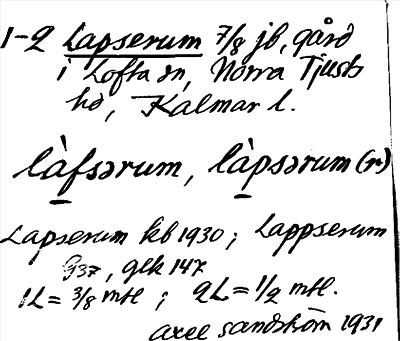 1-2 Lapserum 7/8 jb, gård
i Lofta sn, Norra Tjusts
hd, Kalmar l.
làfsərum, làpsərum (gr)
Lapserum kb 1930; Lappserum
G37, glk 147
1L = 3/8 mtl; 2L = 1/2 mtl.
Axel Sandström 1931